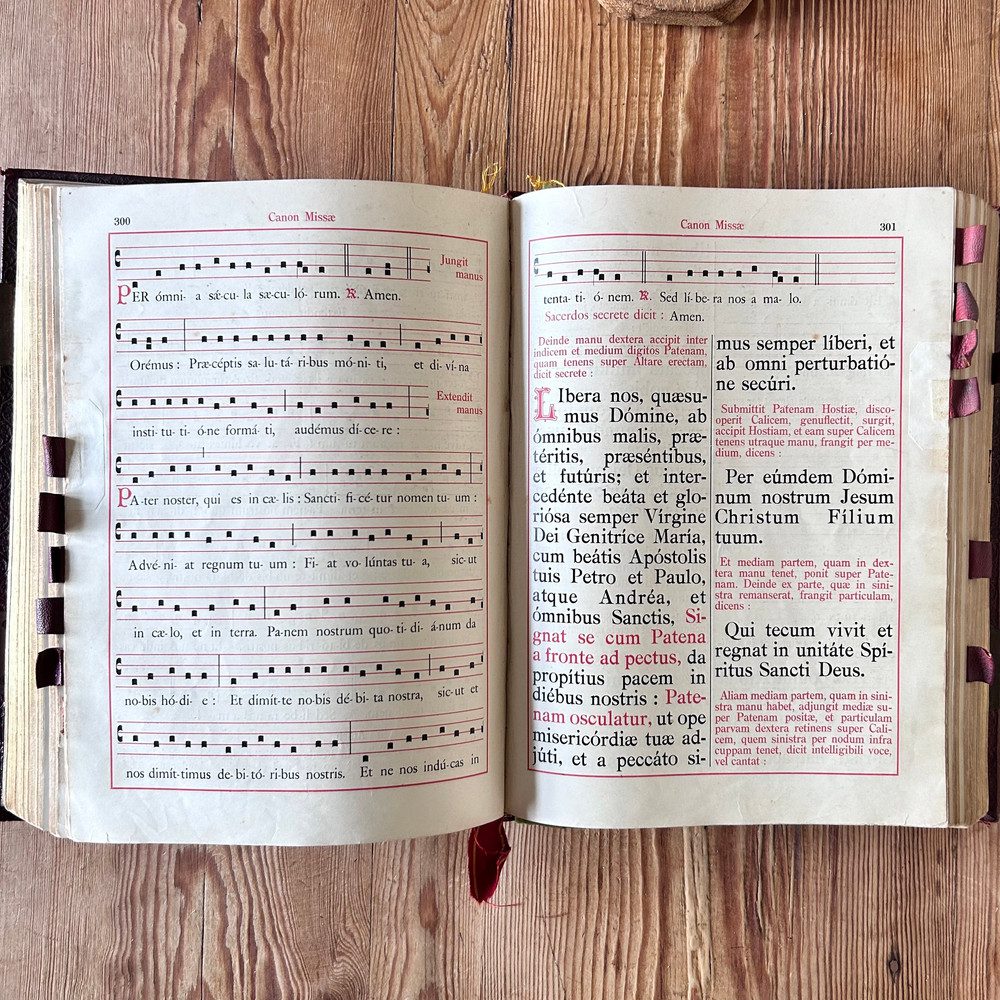 300
Canon Missæ
Jungit
manus
PER ómni- a sǽ-cu-la sæ-cu-ló-rum. ℟. Amen.
Orémus : Præcéptis sa-lu-tá-ri-bus mó-ni-ti, et di-ví-na
Extendit
manus
insti-tu-ti-ó-ne formá-ti, audémus dí-ce-re :
PA-ter noster, qui es in cæ-lis : Sancti-fi-cé-tur nomen tu-um :
Advé-ni-at regnum tu-um : Fi-at vo-lúntas tu-a, sic-ut
in cæ-lo, et in terra. Pa-nem nostrum quo-ti-di-ánum da
no-bis hó-di-e : Et dimít-te no-bis dé-bi-ta nostra, sic-ut et
nos dimít-timus de-bi-tó-ri-bus nostris. Et ne nos indú-cas in
Canon Missæ
301
tenta-ti-ó-nem. ℟. Sed lí-be-ra nos a ma-lo.
Sacerdos secrete dicit : Amen.
Deinde manu dextera accipit inter
indicem et medium digitos Patenam,
quam tenens super Altare erectam,
dicit secrete :
LIbera nos, quæsu-
mus Dómine, ab
ómnibus malis, præ-
téritis, præséntibus,
et futúris; et inter-
cedénte beáta et glo-
riósa semper Vírgine
Dei Genitríce María,
cum beátis Apóstolis
tuis Petro et Paulo,
atque Andréa, et
ómnibus Sanctis, Si-
gnat se cum Patena
a fronte ad pectus, da
propítius pacem in
diébus nostris : Pate-
nam osculatur, ut ope
misericórdiæ tuæ ad-
júti, et a peccáto si-
mus semper líberi, et
ab omni perturbatió-
ne secúri.
Submittit Patenam Hostiæ, disco-
operit Calicem, genuflectit, surgit,
accipit Hostiam, et eam super Calicem
tenens utraque manu, frangit per me-
dium, dicens :
Per eúmdem Dómi-
num nostrum Jesum
Christum Fílium
tuum.
Et mediam partem, quam in dex-
tera manu tenet, ponit super Pate-
nam. Deinde ex parte, quæ in sini-
stra remanserat, frangit particulam,
dicens :
Qui tecum vivit et
regnat in unitáte Spí-
ritus Sancti Deus.
Aliam mediam partem, quam in sini-
stra manu habet, adjungit mediæ su-
per Patenam positæ, et particulam
parvam dextera retinens super Cali-
cem, quem sinistra per nodum infra
cuppam tenet, dicit intelligibili voce,
vel cantat :